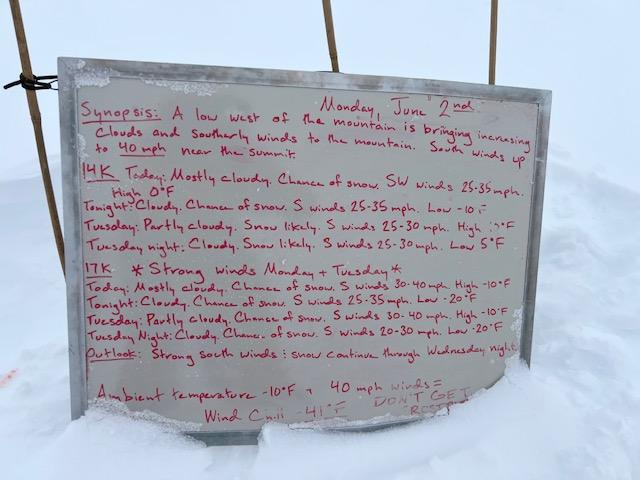 Monday, June 2nd
Synopsis: A low west of the mountain is bringing increasing
Clouds and southerly winds to the mountain. South winds up
to 40 mph near the summit.
14K Today: Mostly cloudy. Chance of snow. SW winds 25-35 mph.
High 0°F
Tonight: Cloudy. Chance of snow. S winds 25-35 mph. Low -10°F
Tuesday: Partly cloudy. Snow likely. S winds 25-30 mph. High
Tuesday night: Cloudy. Snow likely. S winds 25-30 mph. Low 5°F
17K * Strong winds Monday + Tuesday *
Today: Mostly cloudy. Chance of snow. S winds 30-40 mph. High -10°F
Tonight: Cloudy. Chance of snow. S winds 25-35 mph. Low -20°F
Tuesday: Partly cloudy. Chance of snow. S winds 30-40 mph. High -10°F
Tuesday Night: Cloudy. Chance of snow. S winds 20-30 mph. Low -20°F
Outlook: Strong south winds & snow continue through Wednesday night.
Ambient temperature -10°F + 40 mph winds =
Wind Chill -41°F DON'T GET